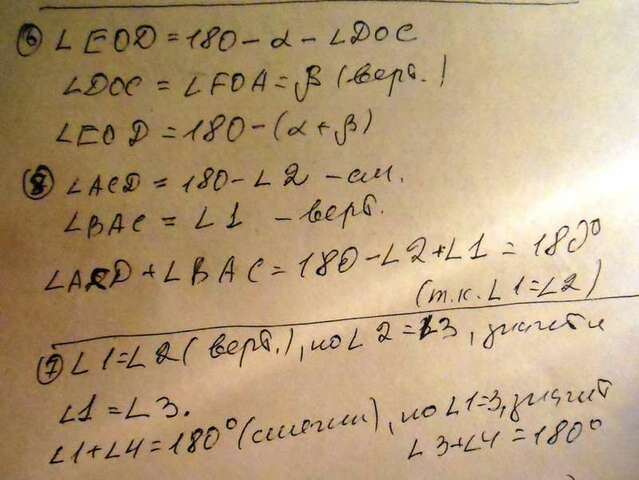 ⑥ ∠EOD = 180 - α - ∠DOC
∠DOC = ∠FOA = β (верт.)
∠EOD = 180 - (α + β)
⑧ ∠ACD = 180 - ∠2 - см.
∠BAC = ∠1 - верт.
∠ACD + ∠BAC = 180 - ∠2 + ∠1 = 180°
(т.к. ∠1 = ∠2)
⑦ ∠1 = ∠2 (верт.), но ∠2 = ∠3, значит и
∠1 = ∠3.
∠1 + ∠4 = 180° (смежн), но ∠1 = 3, значит
∠3 + ∠4 = 180°